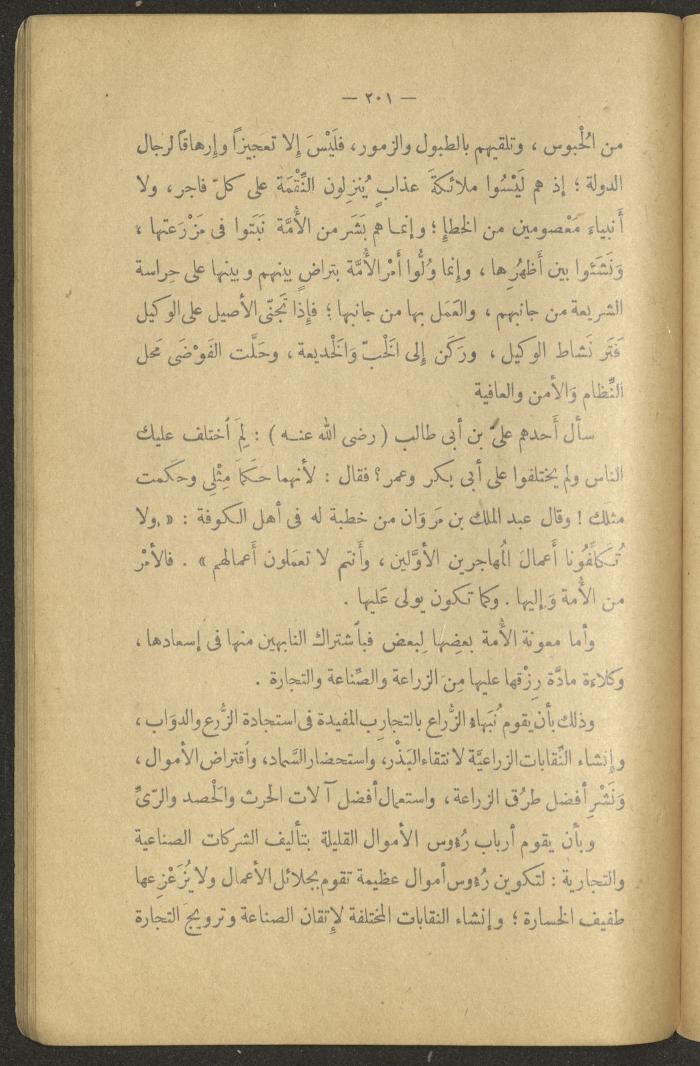 — ٢٠١ —
من الحُبوس ، وتلقيهم بالطبول والزمور ، فلَيْسَ إلا تعجيزاً وإرهاقاً لرجال
الدولة ؛ إذ هم لَيْسُوا ملائكةَ عذابٍ يُنزلون النِّقْمَة على كلّ فاجر ، ولا
أنبياءَ مَعْصومين من الخطإ ؛ وإنما هم بَشَر من الأُمَّة نَبَتوا فى مَزْرَعتها ،
وَنَشَئوا بين أَظهُرِها ، وإنما وُلُّوا أَمْر الأُمَّة بتراضٍ بينهم وبينها على حِراسة
الشريعة من جانبهم ، والعَمَل بها من جانبها ؛ فإِذا تَجَنَّى الأصيل على الوكيل
فَتَر نَشاط الوكيل ، ورَكَن إلى الخَبّ وَالخَديعة ، وحَلَّت الفَوْضَى مَحل
النِّظام وَالأمن والعافية
سأل أَحدهم علىّ بن أبى طالب ( رضى الله عنه ) : لِمَ ٱختلف عليك
الناس ولم يختلفوا على أبى بكر وعمر ؟ فقال : لأنهما حَكَمَا مِثْلِى وحَكَمت
مثلَك ! وقال عبد الملك بن مَرْوَان من خطبة له فى أهل الكوفة : « ولا
تُكَلِّفُونا أَعمالَ المُهاجرين الأوَّلين ، وأَنتم لا تعمَلون أَعمالهم » . فالأمْر
من الأُمة وَإليها . وكما تكون يولى عَليها .
وأما معونة الأُمة بعضِها لِبعض فبٱشتراك النابهين منها فى إسعادها ،
وكلاءة مادَّة رِزْقها عليها مِنَ الزراعة والصِّناعة والتجارة .
وذلك بأن يقوم نُبَهاء الزُّراع بالتجارب المفيدة فى استجادة الزَّرع والدوَاب ،
وإِنشاء النِّقابات الزراعيَّة لانتقاء البَذْر، واستحضار السَّماد، وٱقتراض الأموال ،
وَنَشْرِ أفضل طرُق الزراعة ، واستعمال أفضل آلات الحرث والحْصد والرّىِّ
وبأن يقوم أرباب رُءوس الأموال القليلة بتأليف الشركات الصناعية
والتجارية : لتكوين رُءوس أموال عظيمة تقوم بجلائل الأعمال ولا يُزَعْزِعها
طفيف الخسارة ؛ وإنشاء النقابات المختلفة لإتقان الصناعة وترويج التجارة